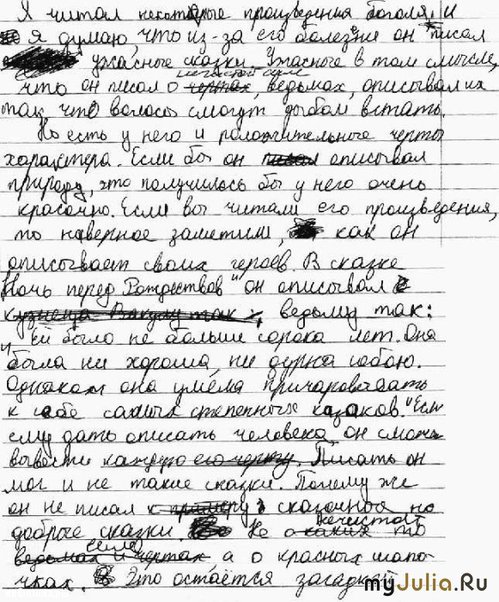 Я читал некоторые произведения Гоголя, и
я думаю, что из-за его болезни он писал
ужасные сказки. Ужасные в том смысле,
нечистой силе
что он писал о чертах, ведьмах, описывал их
так, что волосы смогут дыбом встать.
Но есть у него и положительные черты
характера. Если бы он писал описывал
природу, это получилось бы у него очень
красочно. Если вы читали его произведения,
то наверное заметили, как он
описывает своих героев. В сказке
"Ночь перед Рождеством" он описывал
кузнеца Вакулу так, ведьму так:
"Ей было не больше сорока лет. Она
была ни хороша, ни дурна собою.
Однако она умела причаровывать
к себе самых степенных казаков." Если
ему дать описать человека, он сможет
вывести каждую его черту. Писать он
мог и не такие сказки. Почему же
он не писал к примеру сказочные но
нечистой
добрые сказки. Не о каких то
силе
ведьмах и чертах а о красных шапо-
чках. Это остаётся загадкой
myJulia.Ru